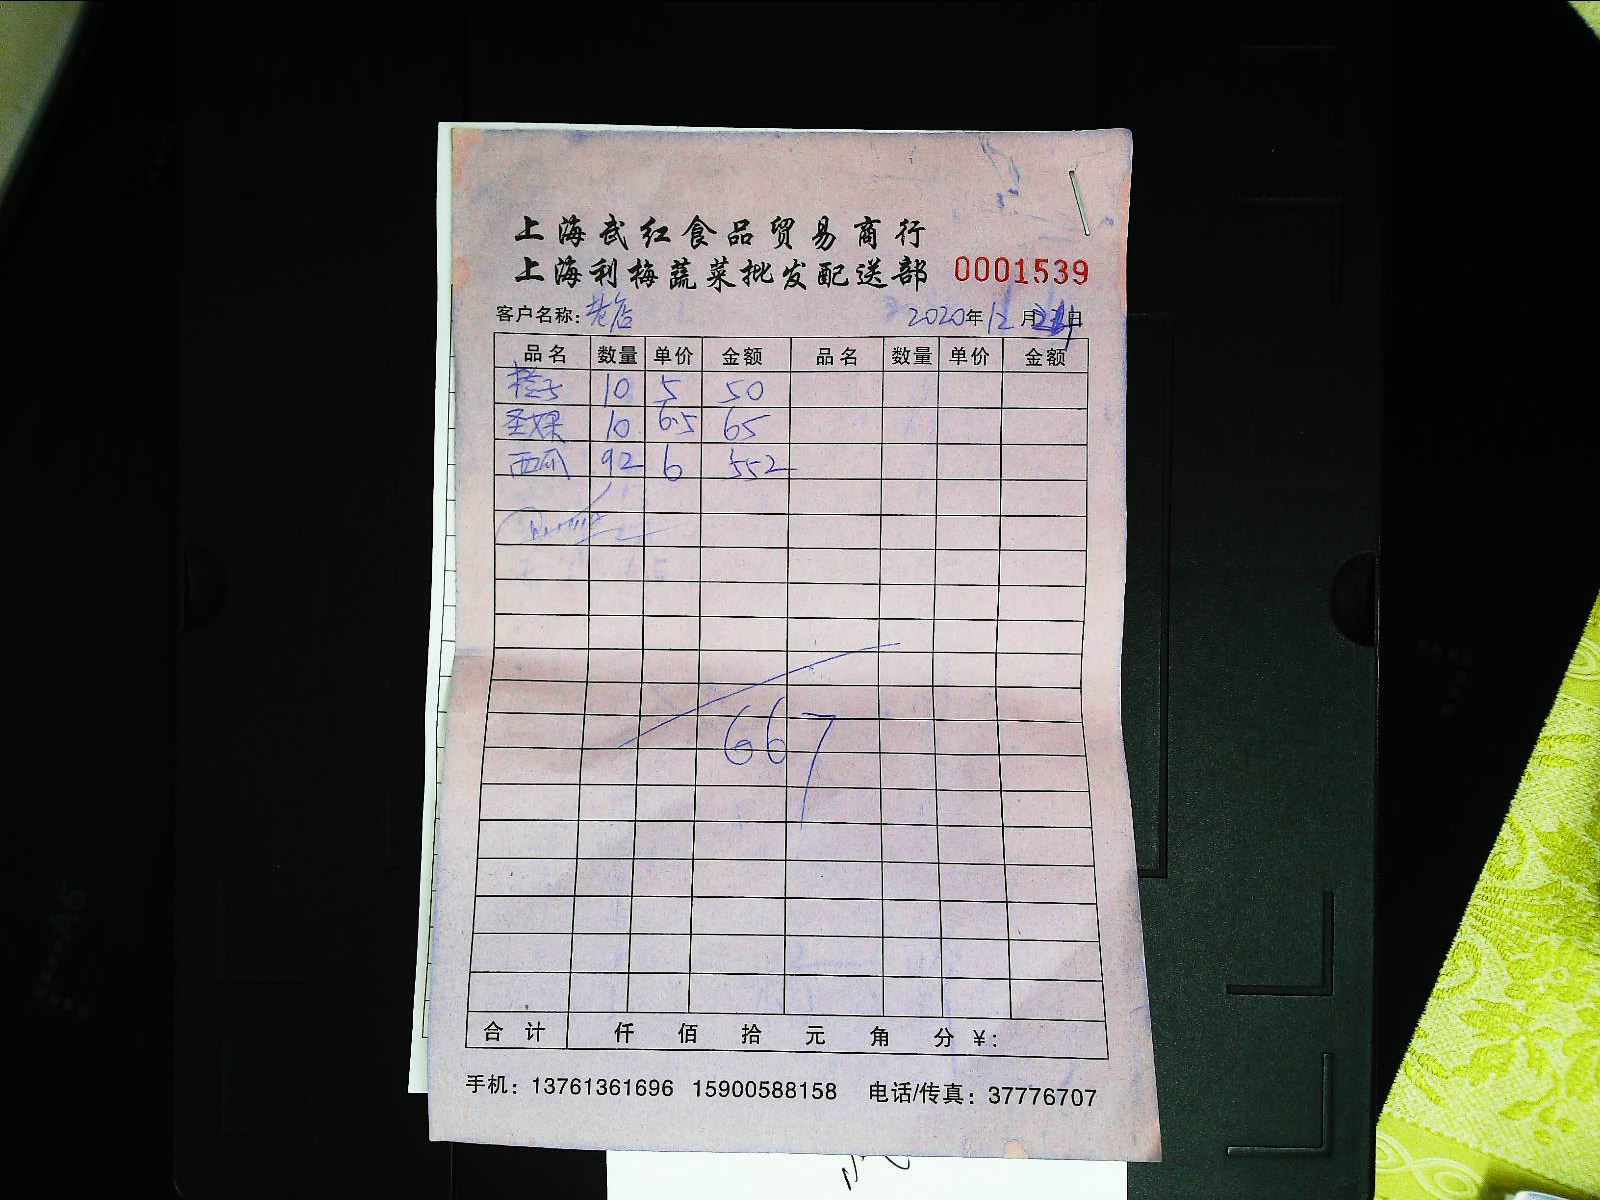 上海武红食品贸易商行
上海利梅蔬菜批发配送部 0001539
客户名称：老店 2020年12月日
品名 数量 单价 金额 品名 数量 单价 金额
橙子 10 5 50
圣女果 10 6.5 65
西瓜 92 6 552
667
合计 仟 佰 拾 元 角 分 ¥：
手机：13761361696 15900588158 电话/传真：37776707
A5